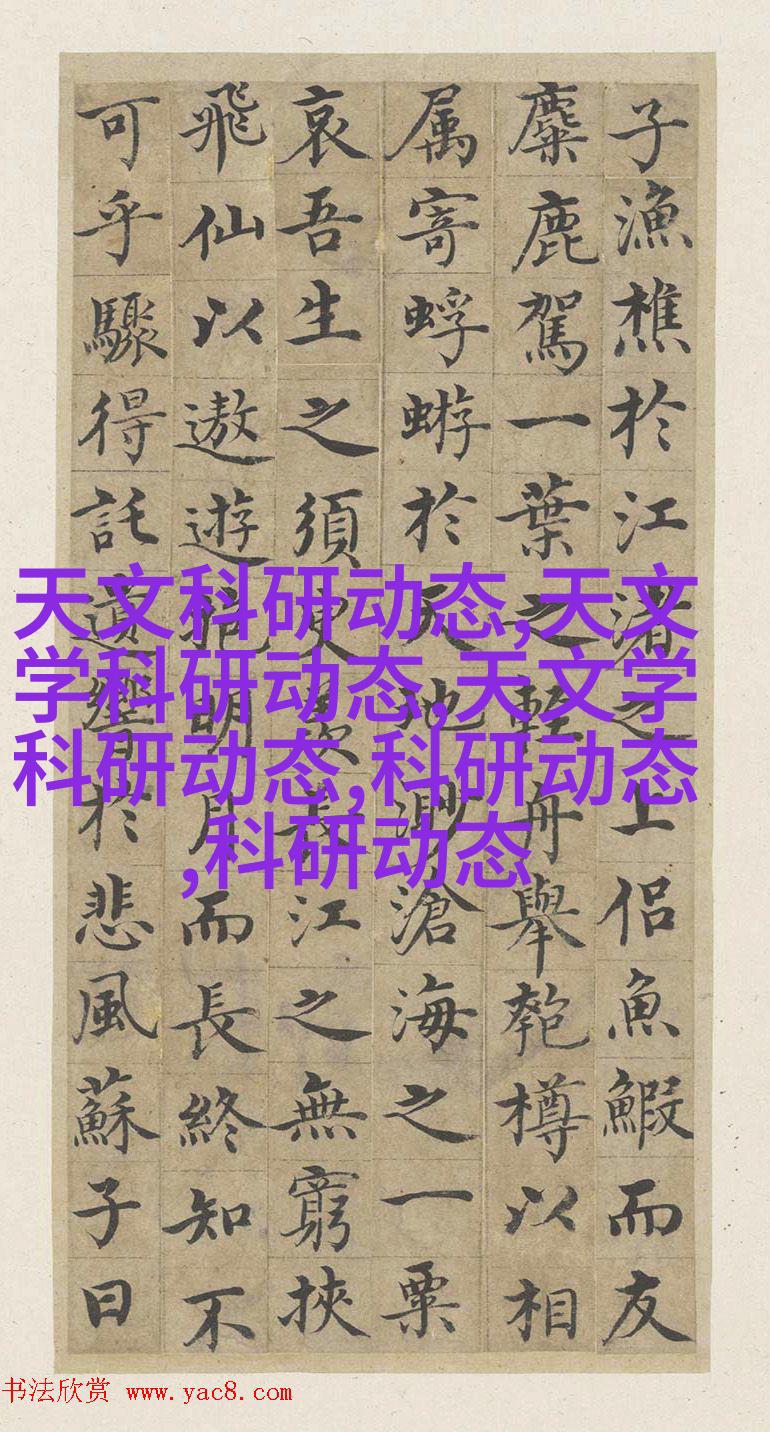 子漁樵於江渚之上侶魚鰕而友
麋鹿駕一葉之輕舟舉匏樽以相
属寄蜉蝣於天地渺滄海之一粟
哀吾生之須臾羨長江之無窮挾
飛仙以遨遊抱明月而長終知不
可乎驟得託遺響於悲風蘇子曰
天文科研动态,天文
学科研动态,天文学
科研动态,科研动态
,科研动态
书法欣赏 www.yac8.com